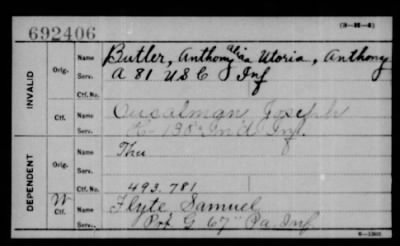 (3-216-a)
692406
INVALID
Orig.
Name Butler, Anthony alias Utoria, Anthony
Serv. A 81 U S C Inf
Ctf. No.
Ctf.
Name Joseph
Serv. K 138 Ind Inf.
DEPENDENT
Orig.
Name
Serv.
Ctf. No. 493.781
W
Ctf.
Name Flyte Samuel
Serv. G 67" Pa. Inf